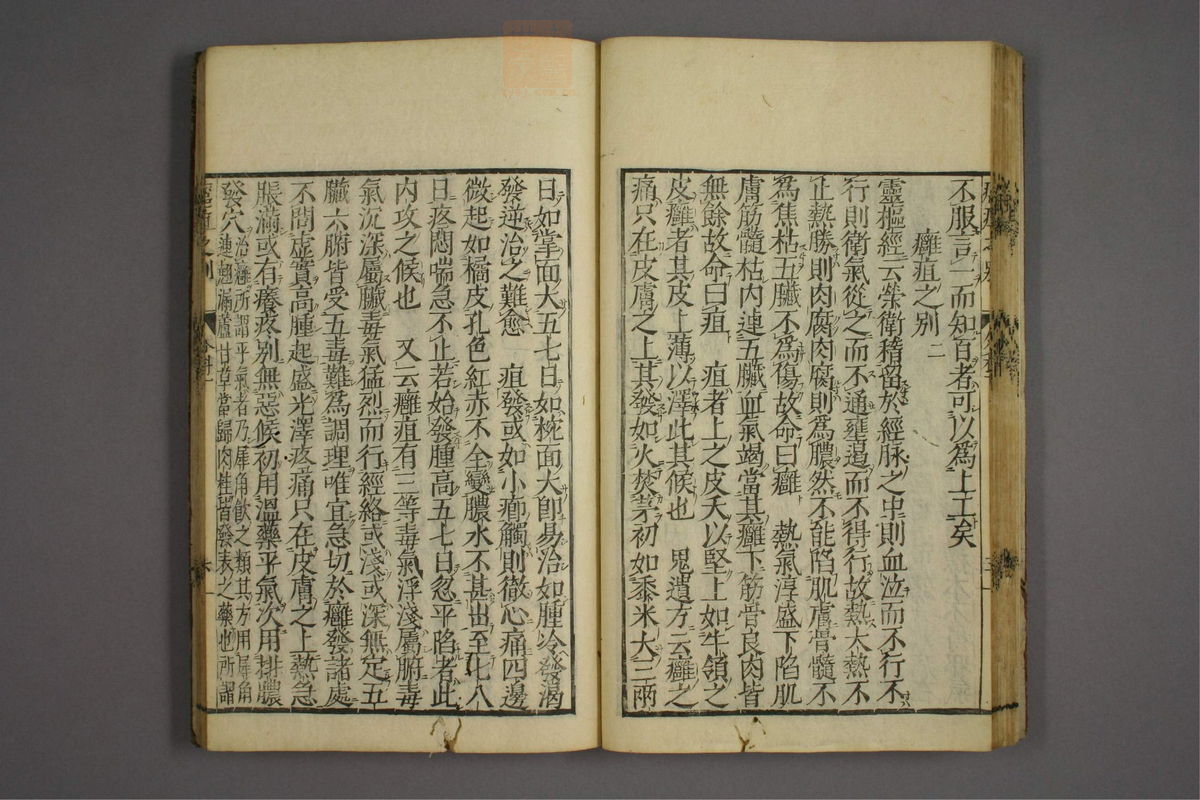 不服言一而知百者可以爲上工矣
癰疽之別 二
靈樞經云榮衛稽留於經脉之中則血泣而不行不
行則衛氣從之而不通壅遏而不得行故熱大熱不
止熱勝則肉腐肉腐則爲膿然不能陷肌膚骨髓不
爲焦枯五臟不爲傷故命曰癰 熱氣淳盛下陷肌
膚筋髓枯内連五臟血氣竭當其癰下筋骨良肉皆
無餘故命曰疽 疽者上之皮夭以堅上如牛領之
皮癰者其皮上薄以澤此其候也 鬼遺方云癰之
痛只在皮膚之上其發如火焚茅初如黍米大三兩
日如掌面大五七日如椀面大卽易治如腫冷發渴
發逆治之難愈 疽發或如小癤觸則徹心痛四邊
微起如橘皮孔色紅赤不全變膿水不甚出至七八
日疼悶喘急不止若始發腫高五七日忽平陷者此
内攻之候也 又云癰疽有三等毒氣浮淺屬腑毒
氣沉深屬臟毒氣猛烈而行經絡或淺或深無定五
臟六腑皆受五毒難爲調理唯宜急切於癰發諸處
不問虛實高腫起盛光澤疼痛只在皮膚之上熱急
脹滿或有癢疼別無惡候初用溫藥平氣次用排膿
發穴 治癰所謂平氣者乃犀角飲之類其方用犀角
連翹漏蘆甘草當歸肉桂皆發表之藥也所謂
癰疽之別
六